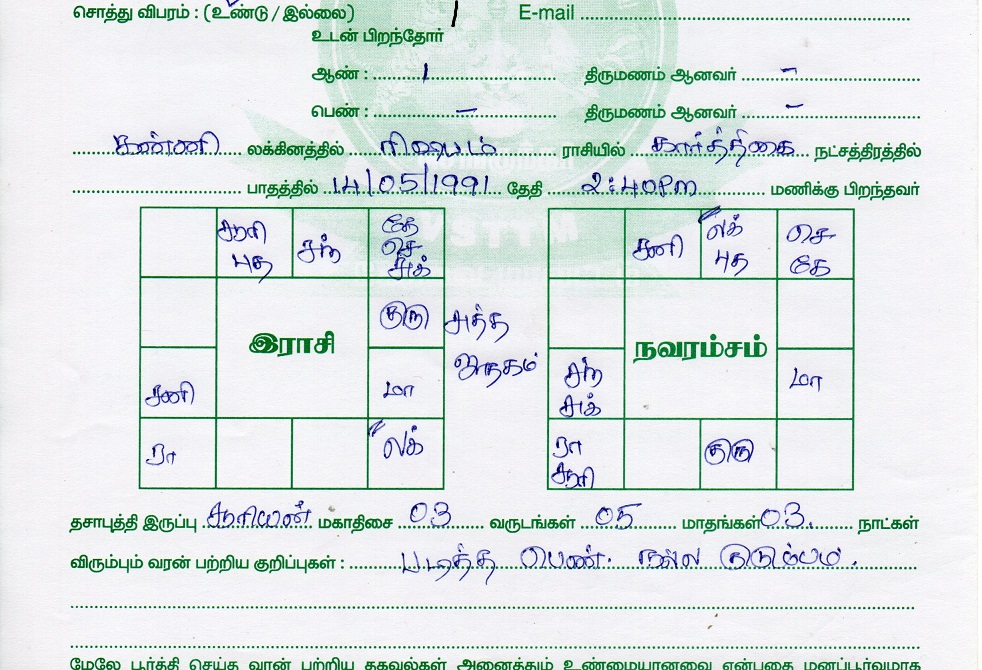 சொத்து விபரம் : (உண்டு / இல்லை) E-mail
உடன் பிறந்தோர்
ஆண் : 1 திருமணம் ஆனவர் -
பெண் : - திருமணம் ஆனவர் -
கண்ணி லக்கினத்தில் ரிஷபம் ராசியில் கார்த்திகை நட்சத்திரத்தில்
பாதத்தில் 14/05/1991 தேதி 2:40pm மணிக்கு பிறந்தவர்
சூரி புத
சந்
கே செ சுக்
குரு
சனி
இராசி
மா
ரா
லக்
சுத்த ஜாதகம்
சனி
லக் புத
செ கே
நவரம்சம்
சந் சுக்
மா
ரா சூரி
குரு
தசாபுத்தி இருப்பு சூரியன் மகாதிசை 03 வருடங்கள் 05 மாதங்கள் 03. நாட்கள்
விரும்பும் வரன் பற்றிய குறிப்புகள் : படித்த பெண். நல்ல குடும்பம்.
மேலே பூர்த்தி செய்த வரன் பற்றிய தகவல்கள் அனைத்தும் உண்மையானவை என்பதை மனப்பூர்வமாக